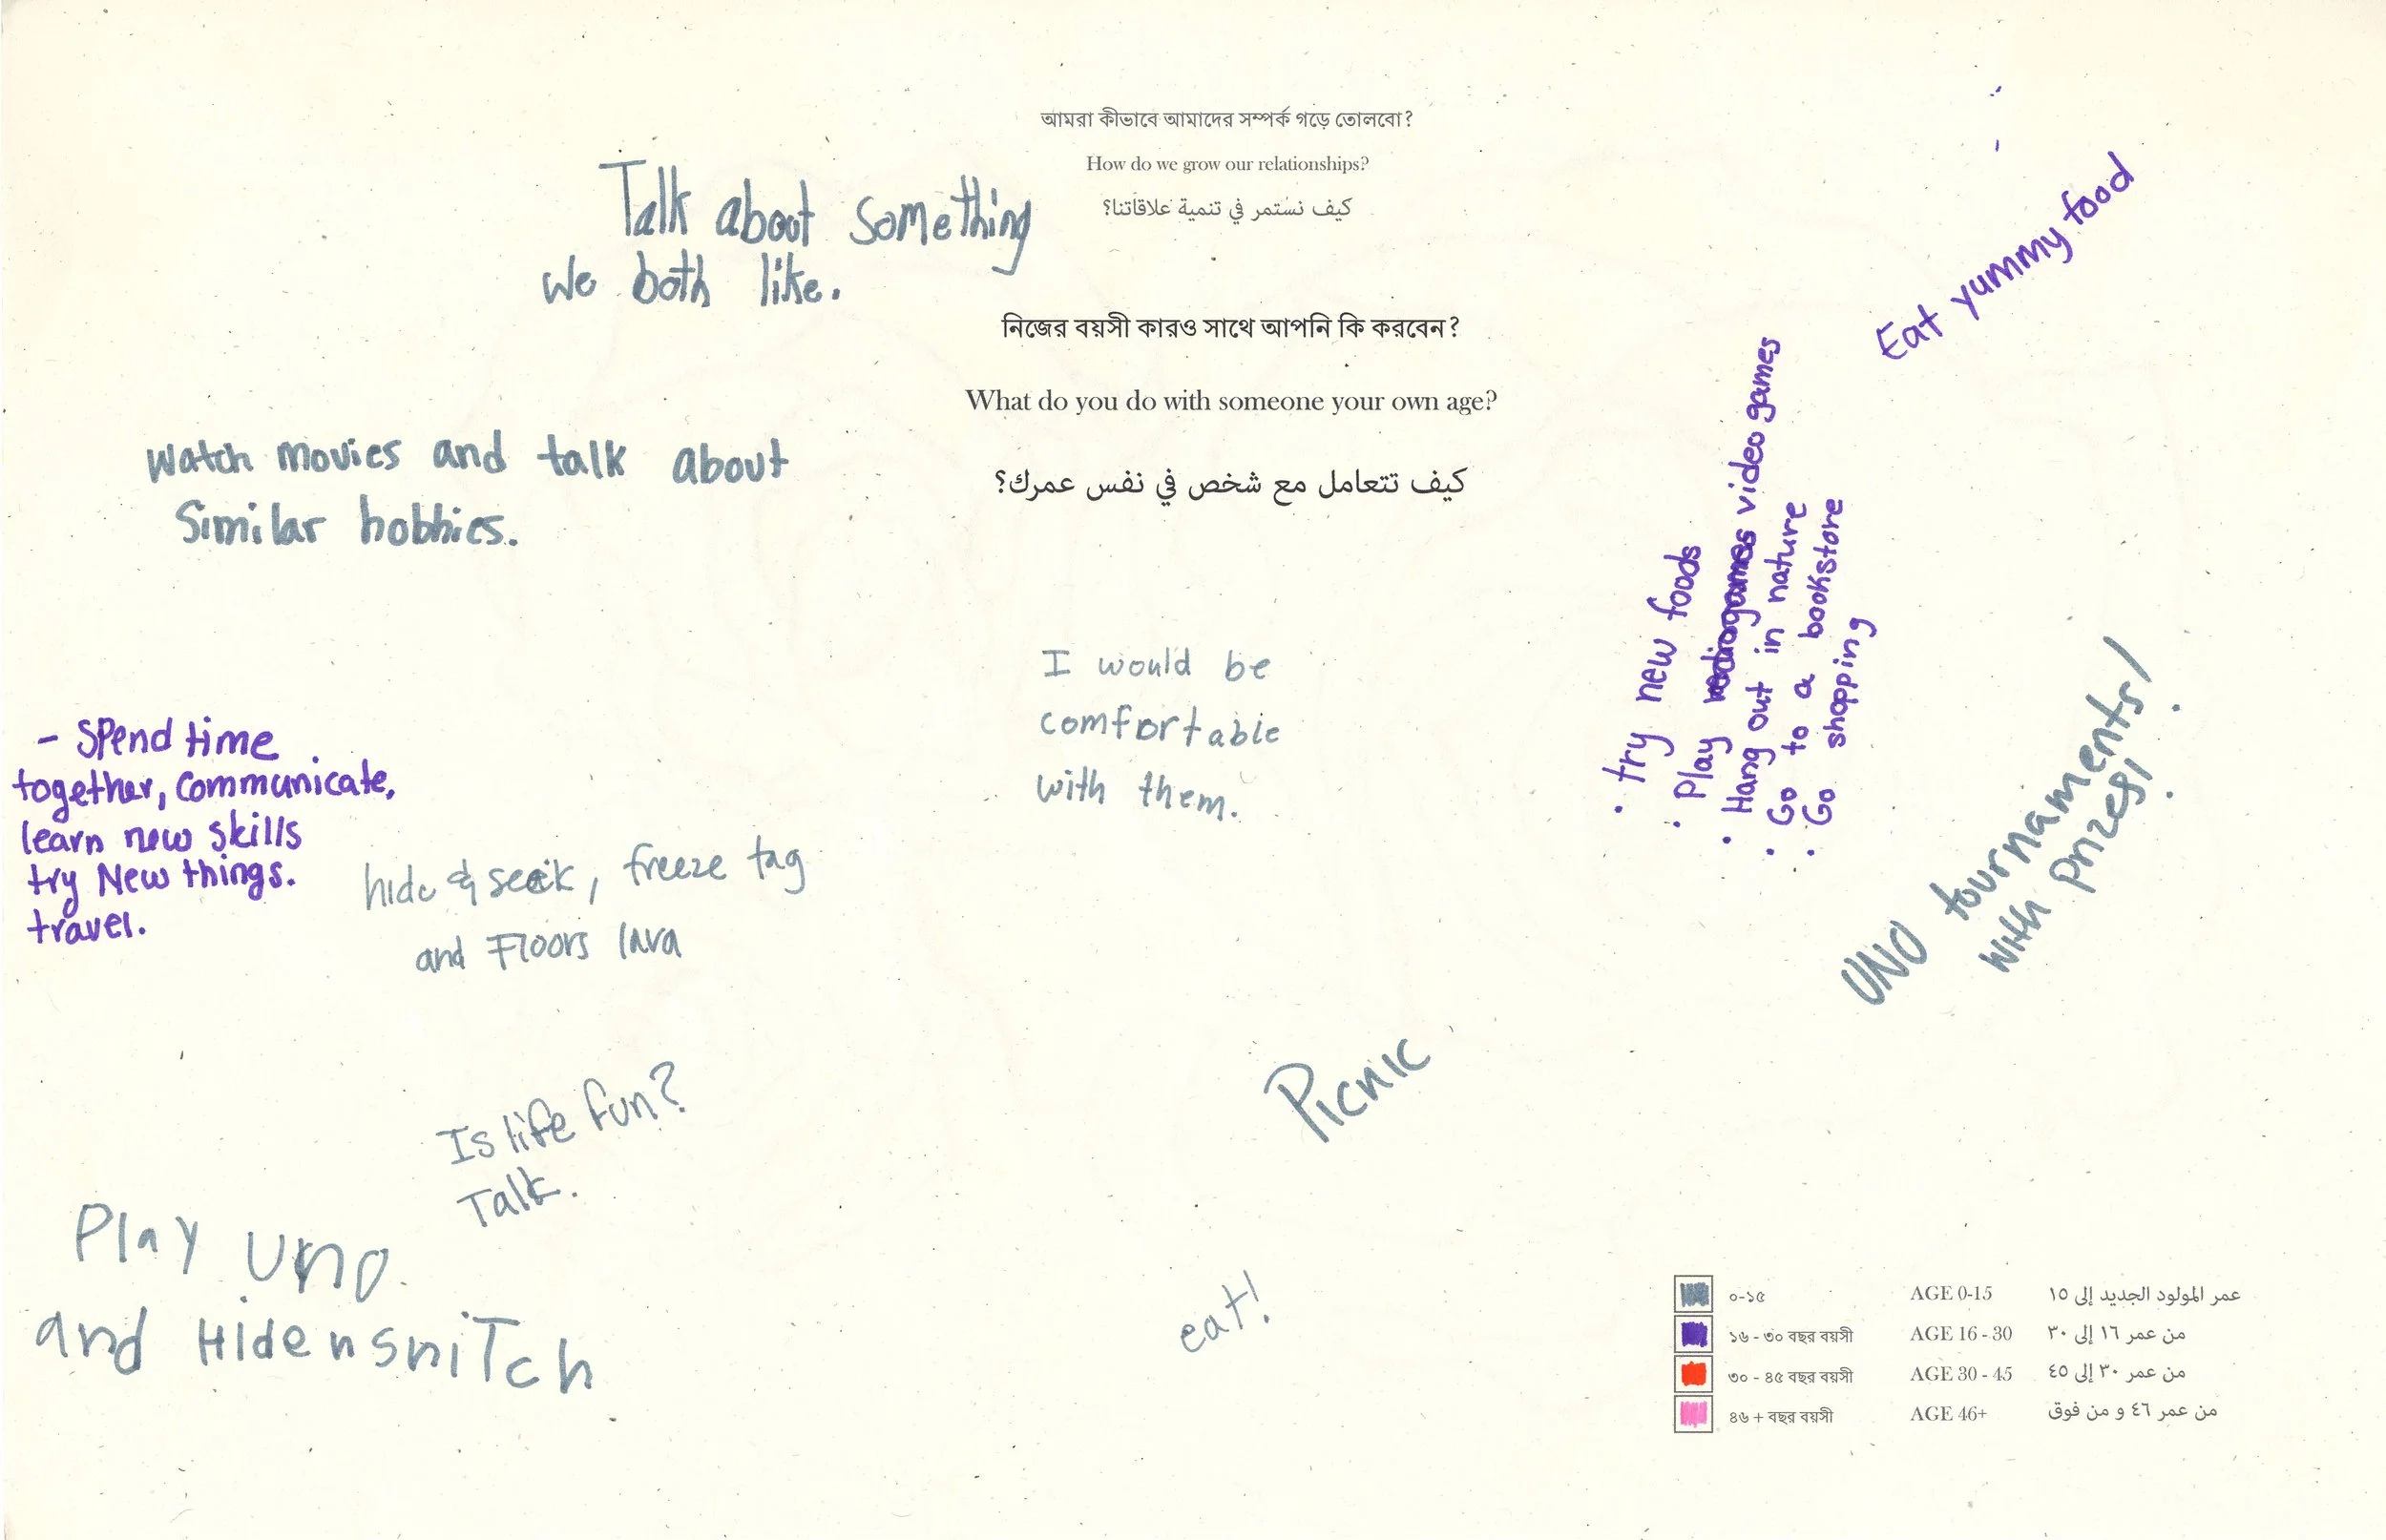 আমরা কীভাবে আমাদের সম্পর্ক গড়ে তোলবো?
How do we grow our relationships?
كيف نستمر في تنمية علاقاتنا؟
Talk about something
we both like.
নিজের বয়সী কারও সাথে আপনি কি করবেন?
What do you do with someone your own age?
كيف تتعامل مع شخص في نفس عمرك؟
Eat yummy food
watch movies and talk about
Similar hobbies.
• try new foods
• Play video games
• Hang out in nature
• Go to a bookstore
• Go shopping
I would be
comfortable
with them.
- Spend time
together, communicate,
learn new skills
try New things.
travel.
hide & seek, freeze tag
and Floors lava
UNO tournaments!
with prizes!
Picnic
Is life fun?
Talk.
Play uno
and Hide n sniTch
eat!
০-১৫ AGE 0-15 عمر المولود الجديد إلى ١٥
১৬ - ৩০ বছর বয়সী AGE 16 - 30 من عمر ١٦ إلى ٣٠
৩০ - ৪৫ বছর বয়সী AGE 30 - 45 من عمر ٣٠ إلى ٤٥
৪৬ + বছর বয়সী AGE 46+ من عمر ٤٦ و من فوق